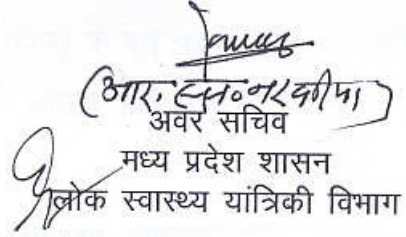 (आर. एस. नरवरीया)
अवर सचिव
मध्य प्रदेश शासन
लोक स्वास्थ्य यांत्रिकी विभाग